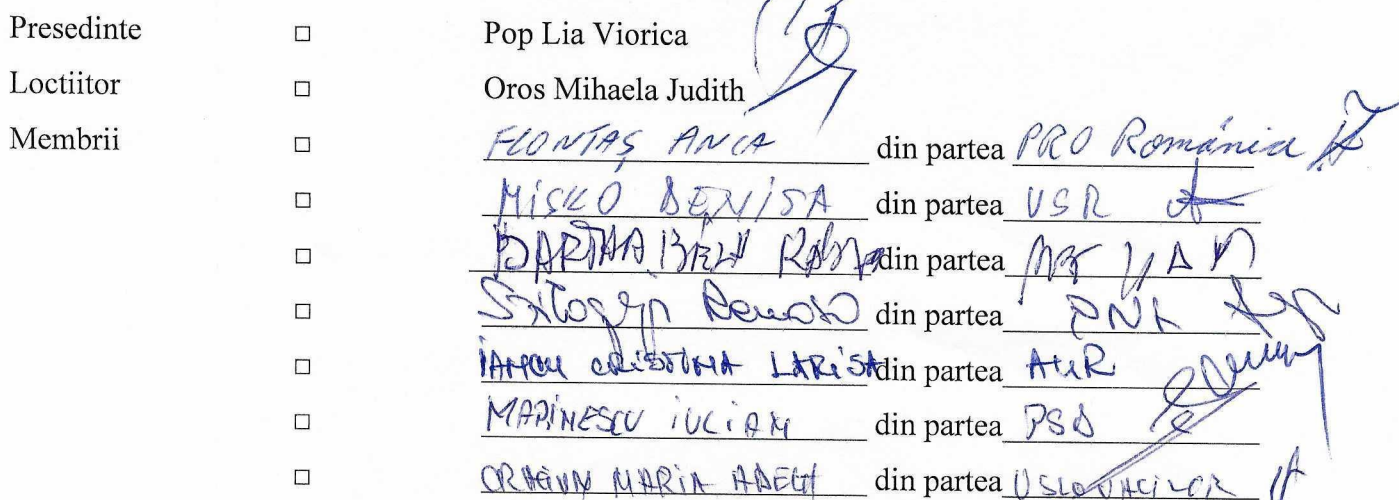 Presedinte □ Pop Lia Viorica
Loctiitor □ Oros Mihaela Judith
Membrii □ FLONTAȘ ANCA din partea PRO România
□ MISKO DENISA din partea USR
□ BARTHA BELA din partea
□ din partea PNL
□ IANCU CRISTINA LARISA din partea AUR
□ MARINESCU IULIAN din partea PSD
□ CRACIUN MARIA ADELA din partea U SLOVACILOR